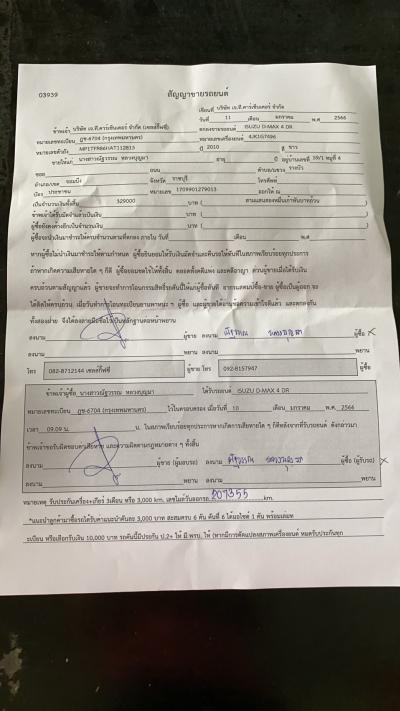 สัญญาขายรถยนต์
03939
เขียนที่ บริษัท เจ.ที.คาร์เซ็นเตอร์ จำกัด
วันที่ 11 เดือน มกราคม พ.ศ 2566
ข้าพเจ้า บริษัท เจ.ที.คาร์เซ็นเตอร์ จำกัด (เซลล์กิ๊ฟซี่) ตกลงขายรถยนต์ ISUZU D-MAX 4 DR
หมายเลขทะเบียน ฎช-6704 (กรุงเทพมหานคร) หมายเลขเครื่องยนต์
หมายเลขตัวถัง ปี 2010 สี ขาว
ขายให้แก่ นางสาวณัฐวรรณ หลวงบุญมา อายุ ปี อยู่บ้านเลขที่ 59/1 หมู่ที่ 4
ซอย ถนน ตำบล/แขวง
อำเภอ/เขต จอมบึง จังหวัด ราชบุรี โทรศัพท์
บัตร ประชาชน หมายเลข 1709901279013 ออกให้ ณ
เป็นจำนวนเงินทั้งสิ้น 329000 บาท ( สามแสนสองหมื่นเก้าพันบาทถ้วน
ข้าพเจ้าได้รับมัดจำแล้วเป็นเงิน บาท (
ผู้ซื้อยังคงค้างอีกเป็นจำนวนเงิน บาท (
ผู้ซื้อจะนำเงินมาชำระให้ครบจำนวนตามที่ตกลง ภายใน วันที่ เดือน พ.ศ
หากผู้ซื้อไม่นำเงินมาชำระให้ตามกำหนด ผู้ซื้อยินยอมให้ริบเงินมัดจำและคืนรถให้ทันทีในสภาพเรียบร้อยทุกประการ
ถ้าหากเกิดความเสียหายใด ๆ ก็ดี ผู้ซื้อยอมชดใช้ให้ทั้งสิ้น ตลอดทั้งคดีแพ่ง และคดีอาญา ส่วนผู้ขายเมื่อได้รับเงิน
ครบถ้วนตามสัญญาแล้ว ผู้ขายจะทำการโอนกรรมสิทธิ์รถคันนี้ให้แก่ผู้ซื้อทันที
ทั้งสองฝ่าย จึงได้ลงลายมือชื่อไว้เป็นหลักฐานต่อหน้าพยาน
ลงนาม ผู้ขาย ลงนาม ผู้ซื้อ X
ลงนาม พยาน ลงนาม พยาน
โทร 082-8712144 เซลล์กิ๊ฟซี่ ผู้ขาย โทร 092-8157947 ผู้ซื้อ
ข้าพเจ้าผู้ซื้อ นางสาวณัฐวรรณ หลวงบุญมา ได้รับรถยนต์ ISUZU D-MAX 4 DR
หมายเลขทะเบียน ฎช-6704 (กรุงเทพมหานคร) ไว้ในครอบครอง เมื่อวันที่ 10 เดือน มกราคม พ.ศ 2566
เวลา 09.09 น. น. ในสภาพเรียบร้อยทุกประการหากเกิดการเสียหายใด ๆ ก็ดีหลังจากที่รับรถยนต์ ดังกล่าวมา
ข้าพเจ้าขอรับผิดชอบค่าเสียหาย และความผิดตามกฎหมายต่าง ๆ ทั้งสิ้น
ลงนาม ผู้ขาย (ผู้มอบรถ) ลงนาม ผู้ซื้อ (ผู้รับรถ) X
ลงนาม พยาน ลงนาม พยาน
หมายเหตุ รับประกันเครื่อง+เกียร์ 3เดือน หรือ 3,000 km. เลขไมล์วันออกรถ 207355 km.
*แนะนำลูกค้ามาซื้อรถได้รับค่าแนะนำคันละ 3,000 บาท สะสมครบ 6 คัน คันที่ 6 ได้มอไซค์ 1 คัน พร้อมเล่มท
ะเบียน หรือเลือกรับเงิน 10,000 บาท รถคันนี้มีประกัน ป.2+ ให้ มี พรบ. ให้ (หากมีการดัดแปลงสภาพเครื่องยนต์ หมดรับประกันทุก